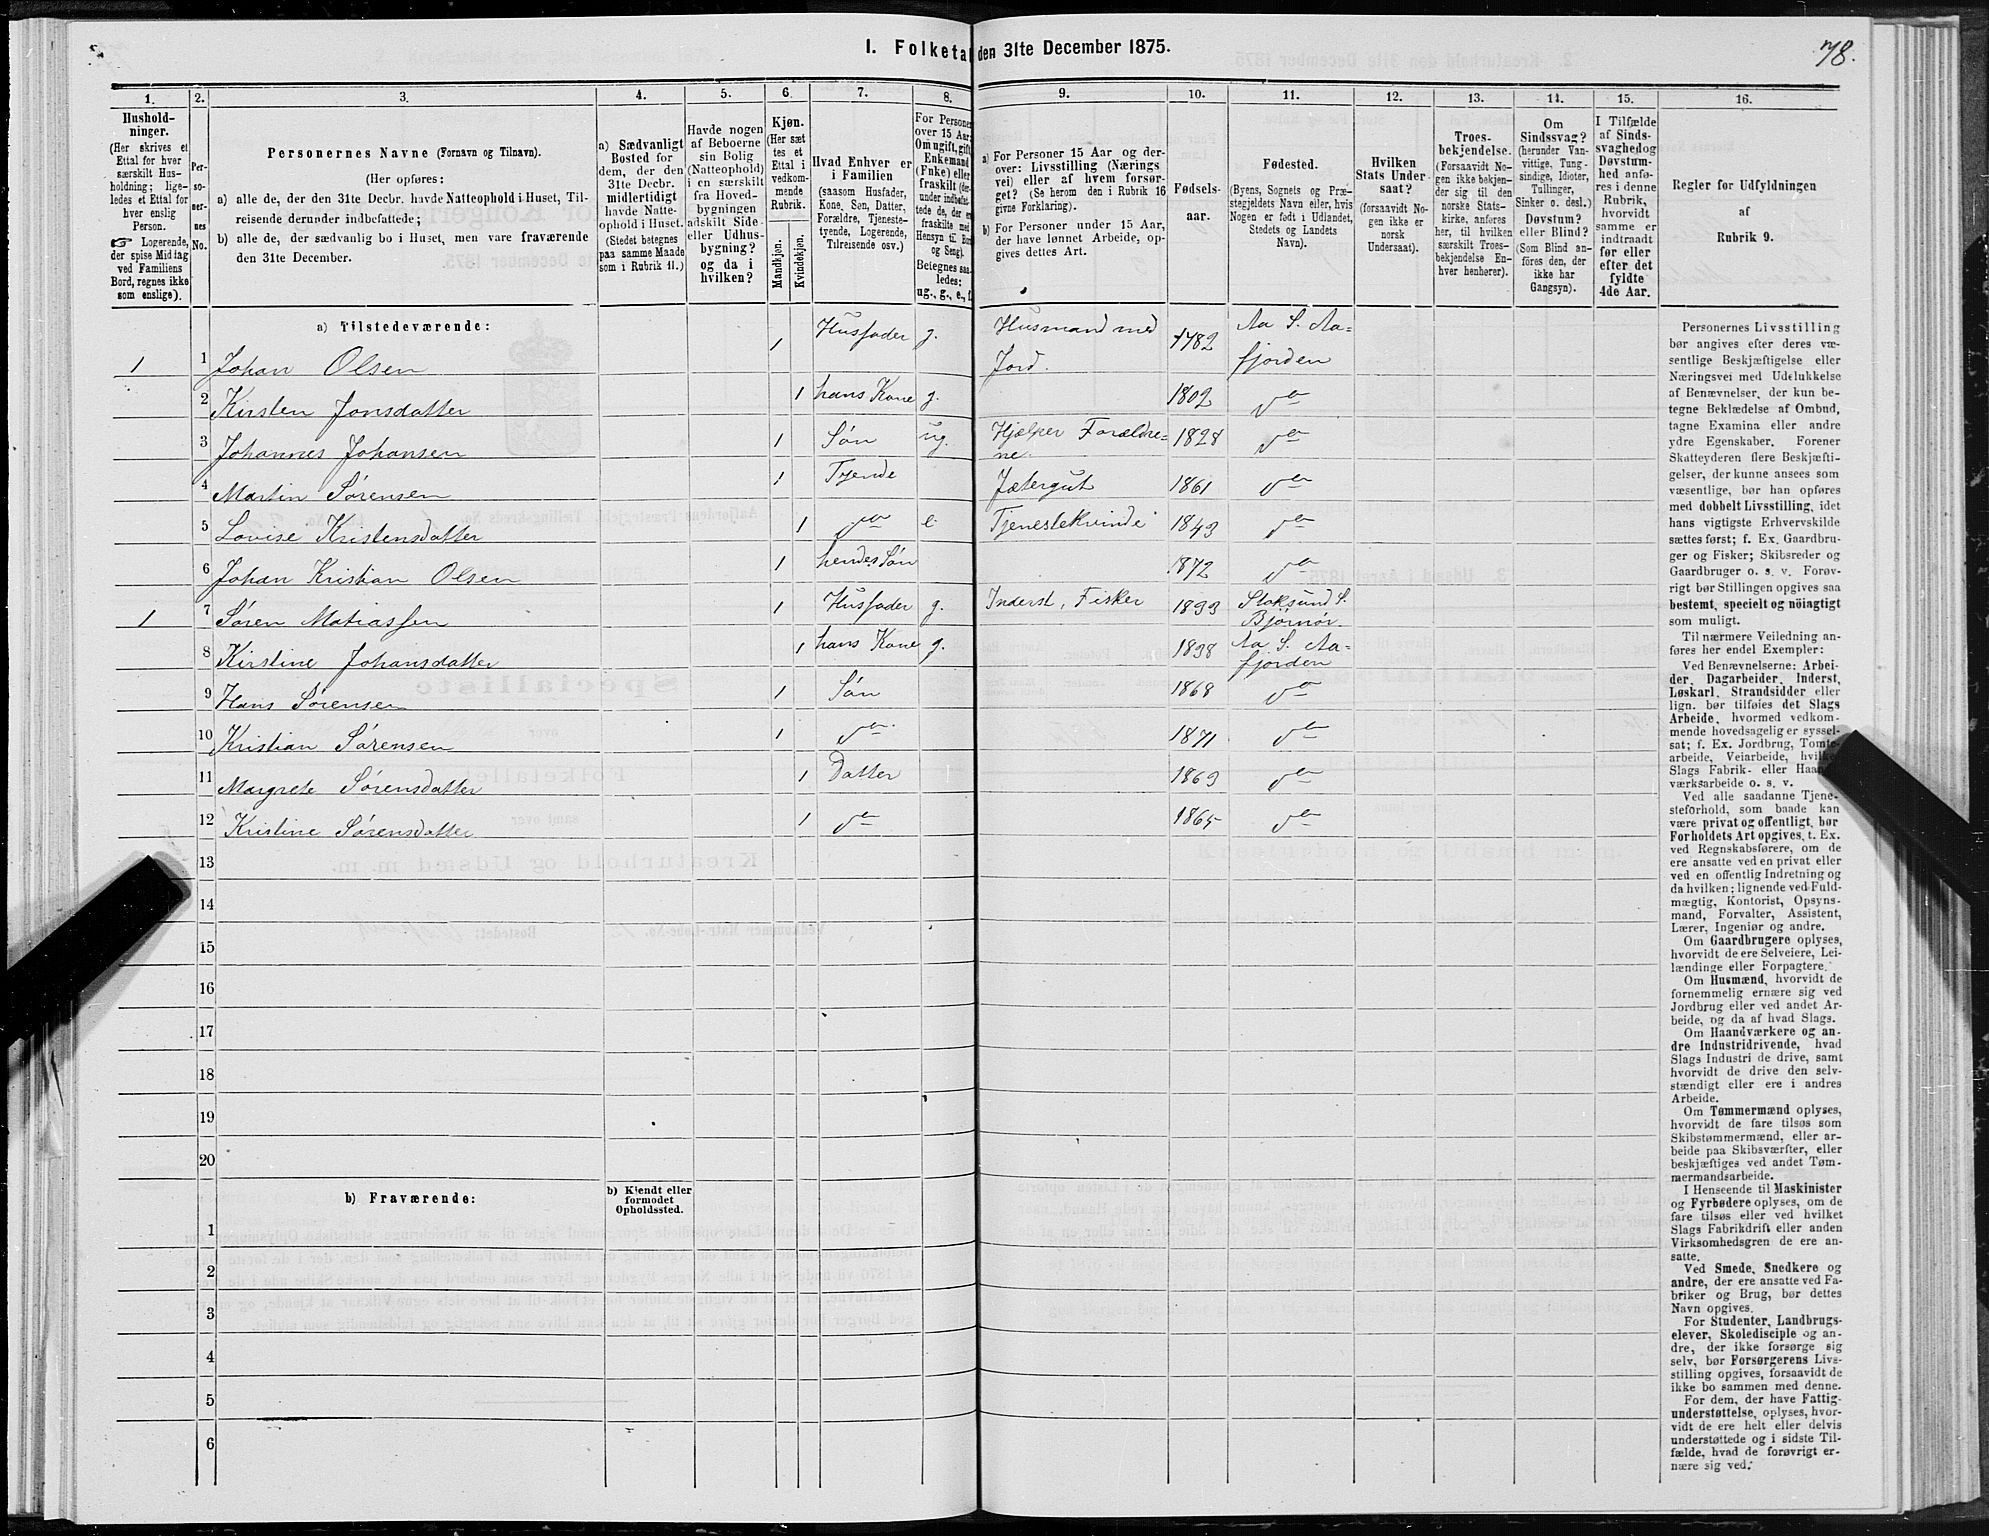 I. Folketal den 31te December 1875.
78.
1.
Hushold-
ninger.
(Her skrives et
Ettal for hver
særskilt Hus-
holdning; lige-
ledes et Ettal for
hver enslig
Person.
Logerende,
der spise Middag
ved Familiens
Bord, regnes ikke
som enslige).
2.
Per-
so-
ner-
nes
No.
3.
Personernes Navne (Fornavn og Tilnavn).
(Her opføres:
a) alle de, der den 31te Decbr. havde Natteophold i Huset, Til-
reisende derunder indbefattede;
b) alle de, der sædvanlig bo i Huset, men vare fraværende
den 31te December.
4.
a) Sædvanligt
Bosted for
dem, der den
31te Decbr.
midlertidigt
havde Natte-
ophold i Huset.
(Stedet betegnes
paa samme Maade
som i Rubrik 11.)
5.
Havde nogen
af Beboerne
sin Bolig
(Natteophold)
i en særskilt
fra Hoved-
bygningen
adskilt Side-
eller Udhus-
bygning?
og da i
hvilken?
6.
Kjøn.
(Her sæt-
tes et
Ettal i
vedkom-
mende
Rubrik.
Mandkjøn.
Kvindekjøn.
7.
Hvad Enhver er
i Familien
(saasom Husfader,
Kone, Søn, Datter,
Forældre, Tjeneste-
tyende, Logerende,
Tilreisende osv.)
8.
For Personer
over 15 Aar:
Om ugift, gift,
Enkemand
(Enke) eller
fraskilt (der-
under indbefat-
tede de, der er
fraskilte med
Hensyn til Bord
og Seng).
Betegnes saa-
ledes:
ug., g., e., f.
9.
a) For Personer 15 Aar og der-
over: Livsstilling (Nærings-
vei) eller af hvem forsør-
get? (Se herom den i Rubrik 16
givne Forklaring).
b) For Personer under 15 Aar,
der have lønnet Arbeide, op-
gives dettes Art.
10.
Fødsels-
aar.
11.
Fødested.
(Byens, Sognets og Præ-
stegjeldets Navn eller, hvis
Nogen er født i Udlandet,
Stedets og Landets
Navn).
12.
Hvilken
Stats Under-
saat?
(forsaavidt No-
gen ikke er
norsk
Undersaat).
13.
Troes-
bekjendelse.
(Forsaavidt No-
gen ikke bekjen-
der sig til den
norske Stats-
kirke, anføres
her, til hvilken
særskilt Troes-
bekjendelse En-
hver henhører).
14.
Om
Sindssvag?
(herunder Van-
vittige, Tung-
sindige, Idioter,
Tullinger,
Sinker o. desl.)
Døvstum?
eller Blind?
(Som Blind an-
føres den, der
ikke har
Gangsyn).
15.
I Tilfælde
af Sinds-
svaghed og
Døvstum-
hed anfø-
res i denne
Rubrik,
hvorvidt
samme er
indtraadt
før eller
efter det
fyldte
4de Aar.
16.
Regler for Udfyldningen
af
Rubrik 9.
a) Tilstedeværende:
1 1 Johan Olsen 1 Husfader g. Husmand med Jord. 1782 Aa S. Aa=
fjorden
2 Kirsten Jonsdatter 1 hans Kone g. 1802 do
3 Johannes Johansen 1 Søn ug. Hjælper Forældre=
ne. 1828 do
4 Martin Sørensen 1 Tyende Jætergut 1861 do
5 Lovise Kristensdatter 1 do e. Tjenestekvinde 1843 do
6 Johan Kristian Olsen 1 hendes Søn 1872 do
1 7 Søren Matiassen 1 Husfader g. Inderst, Fisker 1833 Stoksund S.
Bjørnør.
8 Kirstine Johansdatter 1 hans Kone g. 1838 Aa S. Aa=
fjorden
9 Hans Sørensen 1 Søn 1868 do
10 Kristian Sørensen 1 do 1871 do
11 Margrete Sørensdatter 1 Datter 1863 do
12 Kristine Sørensdatter 1 do 1865 do
13
14
15
16
17
18
19
20
b) Fraværende:
b) Kjendt eller
formodet
Opholdssted.
1
2
3
4
5
6
Personernes Livsstilling
bør angives efter deres væ-
sentlige Beskjæftigelse eller
Næringsvei med Udelukkelse
af Benævnelser, der kun be-
tegne Beklædelse af Ombud,
tagne Examina eller andre
ydre Egenskaber. Forener
Skatteyderen flere Beskjæfti-
gelser, der kunne ansees som
væsentlige, bør han opføres
med dobbelt Livsstilling, idet
hans vigtigste Erhvervskilde
sættes først; f. Ex. Gaardbru-
ger og Fisker; Skibsreder og
Gaardbruger o. s. v. Forøv-
rigt bør Stillingen opgives saa
bestemt, specielt og nöiagtigt
som muligt.
Til nærmere Veiledning an-
føres her endel Exempler:
Ved Benævnelserne: Arbei-
der, Dagarbeider, Inderst,
Løskarl, Strandsidder eller
lign. bør tilføies det Slags
Arbeide, hvormed vedkom-
mende hovedsagelig er syssel-
sat; f. Ex. Jordbrug, Tomte-
arbeide, Veiarbeide, hvilket
Slags Fabrik- eller Haand-
værksarbeide o. s. v.
Ved alle saadanne Tjene-
steforhold, som baade kan
være privat og offentligt, bør
Forholdets Art opgives, t. Ex.
ved Regnskabsførere, om de
ere ansatte ved en privat eller
ved en offentlig Indretning og
da hvilken; lignende ved Fuld-
mægtig, Kontorist, Opsyns-
mand, Forvalter, Assistent,
Lærer, Ingeniør og andre.
Om Gaardbrugere oplyses,
hvorvidt de ere Selveiere, Lei-
lændinge eller Forpagtere.
Om Husmænd, hvorvidt de
fornemmelig ernære sig ved
Jordbrug eller ved andet Ar-
beide, og da af hvad Slags.
Om Haandværkere og an-
dre Industridrivende, hvad
Slags Industri de drive, samt
hvorvidt de drive den selv-
stændigt eller ere i andres
Arbeide.
Om Tømmermænd oplyses,
hvorvidt de fare tilsøs som
Skibstømmermænd, eller ar-
beide paa Skibsværfter, eller
beskjæftiges ved andet Tøm-
mermandsarbeide.
I Henseende til Maskinister
og Fyrbødere oplyses, om de
fare tilsøs eller ved hvilket
Slags Fabrikdrift eller anden
Virksomhedsgren de ere an-
satte.
Ved Smede, Snedkere og
andre, der ere ansatte ved Fa-
briker og Brug, bør dettes
Navn opgives.
For Studenter, Landbrugs-
elever, Skoledisciple og an-
dre, der ikke forsørge sig
selv, bør Forsørgerens Livs-
stilling opgives, forsaavidt de
ikke bo sammen med denne.
For dem, der have Fattig-
understøttelse, oplyses, hvor-
vidt de ere helt eller delvis
understøttede og i sidste Til-
fælde, hvad de forøvrigt er-
nære sig ved.